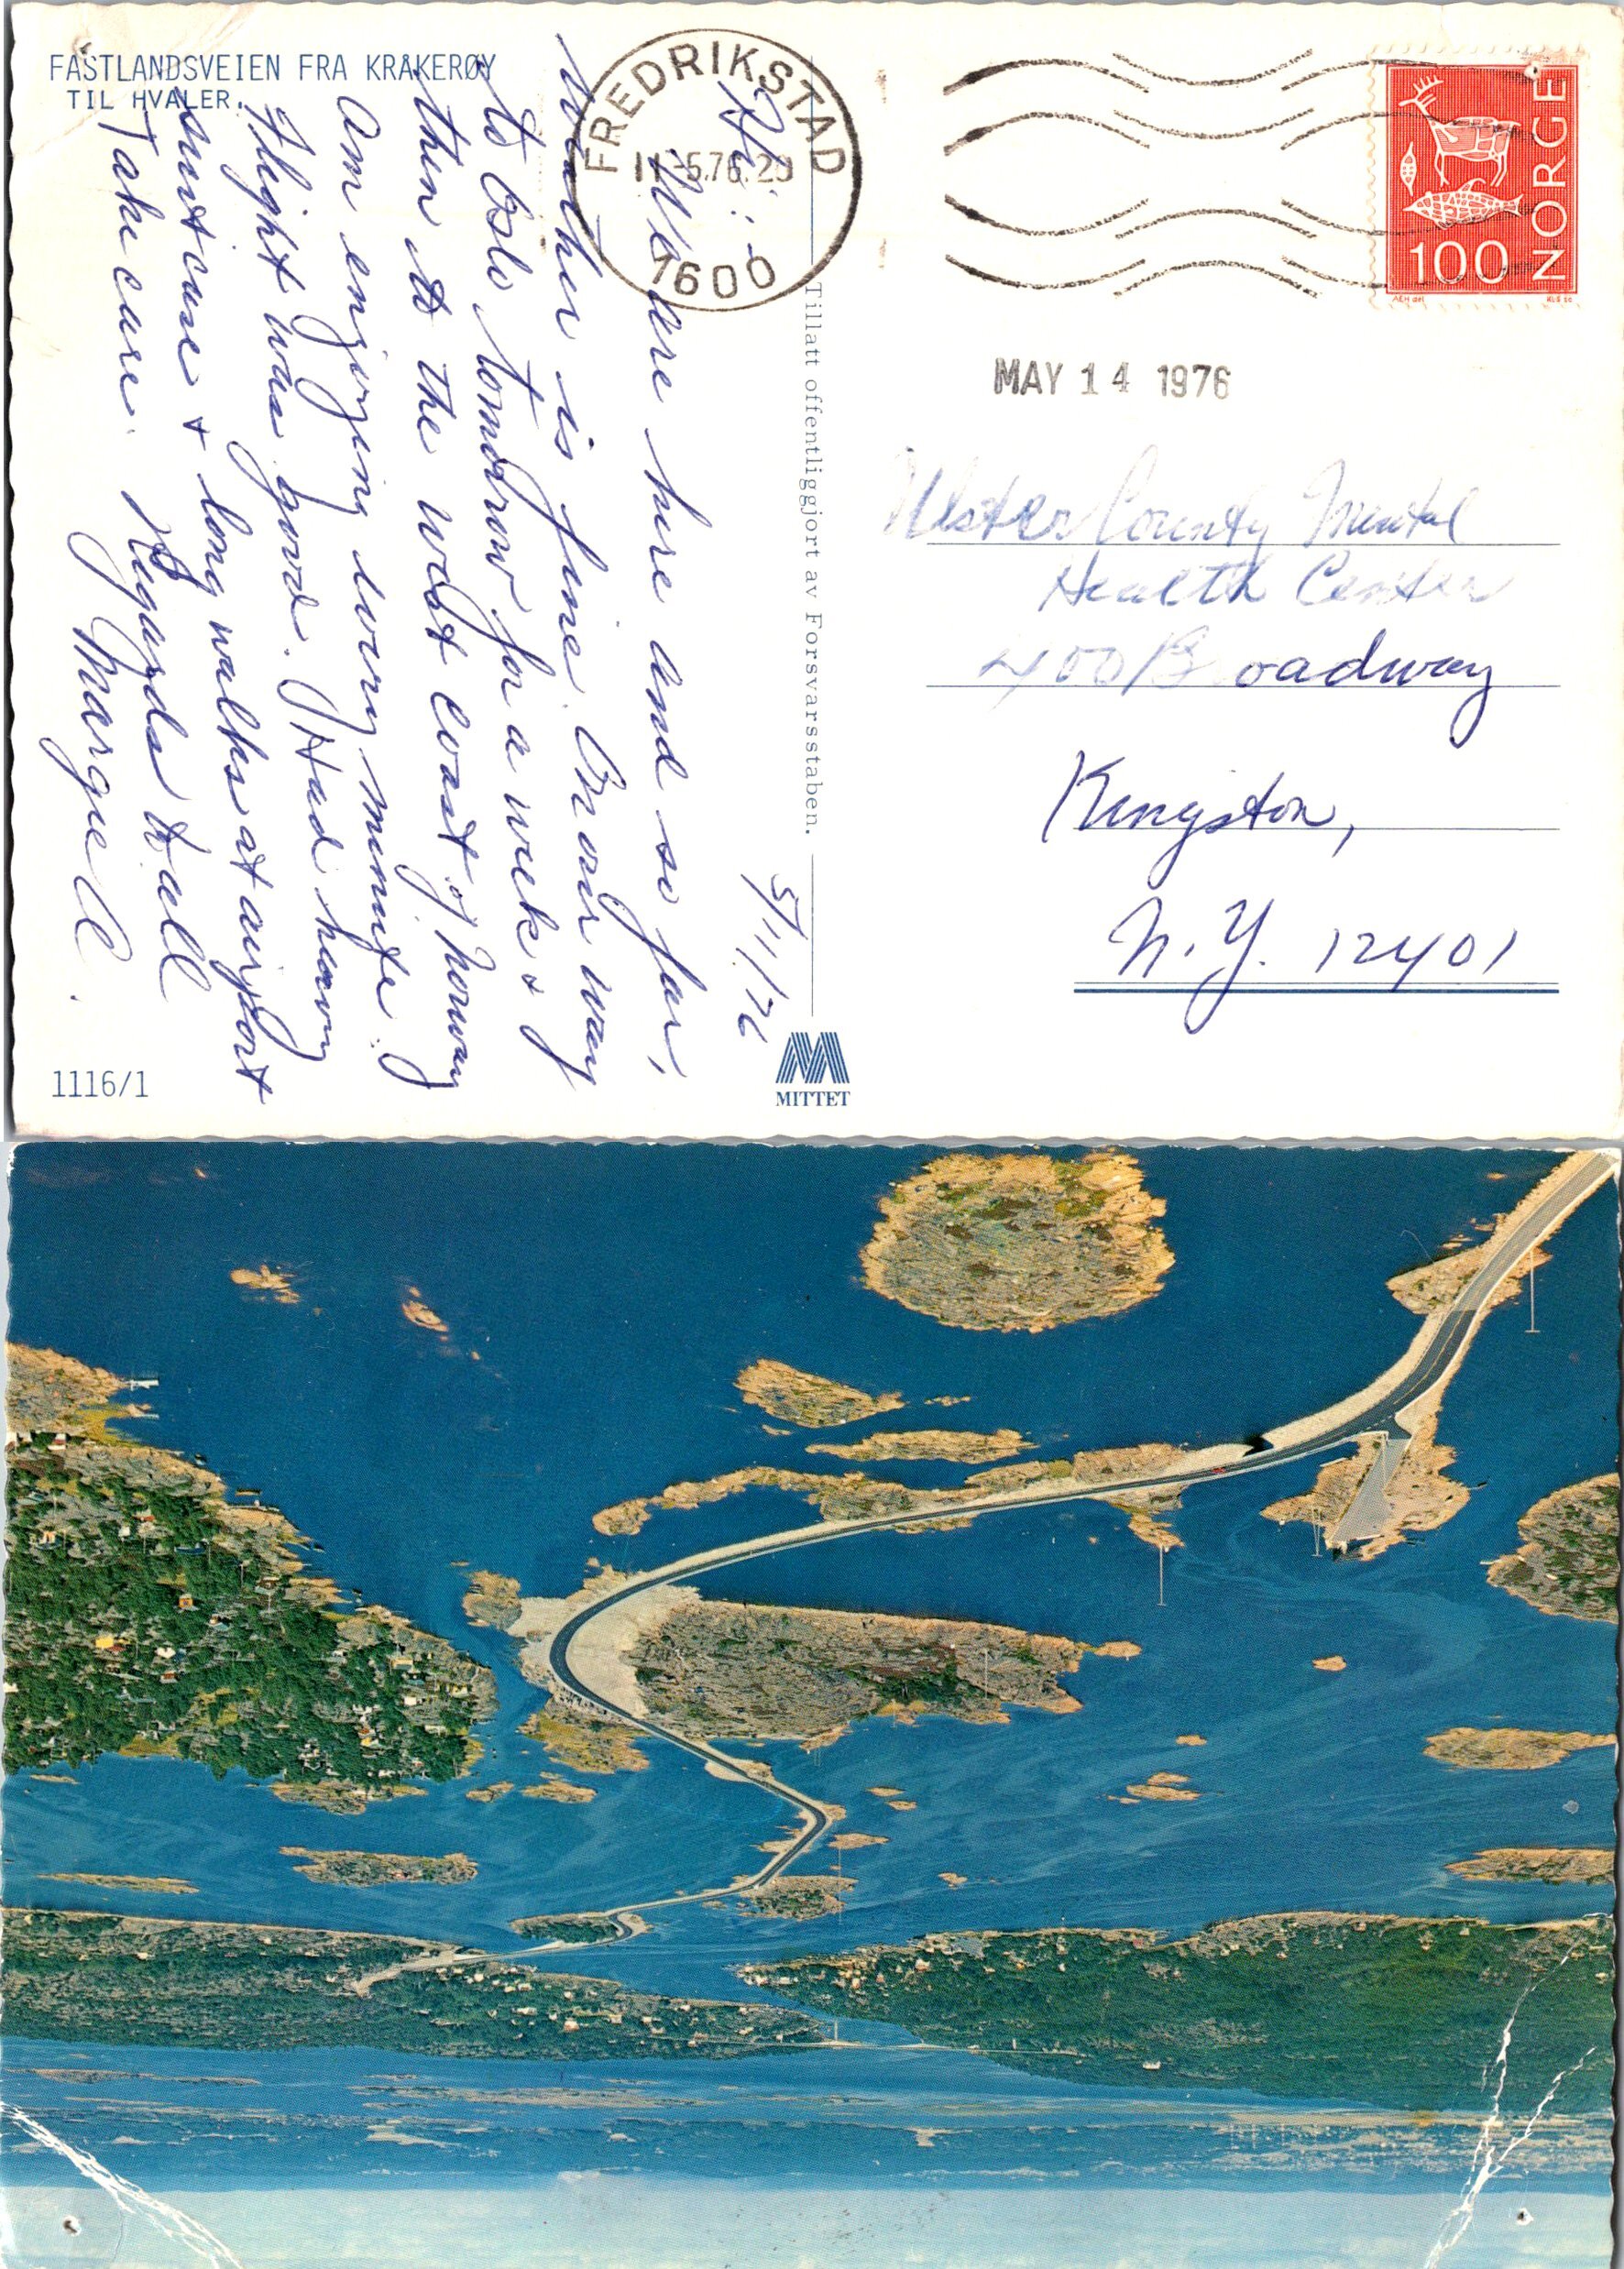 FASTLANDSVEIEN FRA KRÅKERØY
TIL HVALER.
FREDRIKSTAD
11-5.76.20
1600
100 NORGE
AEH del
KLS sc
MAY 14 1976
Ulster County Mental
Health Center
400 Broadway
Kingston,
N.Y. 12401
Tillatt offentliggjort av Forsvarsstaben.
5/11/76
Hi:
We are here and so far,
weather is fine. On our way
to Oslo tomorrow for a week &
then to the west coast of Norway
Am enjoying every minute.
Flight was good. Had heavy
suitcase & long walks at airport
Take care. Regards to all
Margie C.
1116/1
MITTET